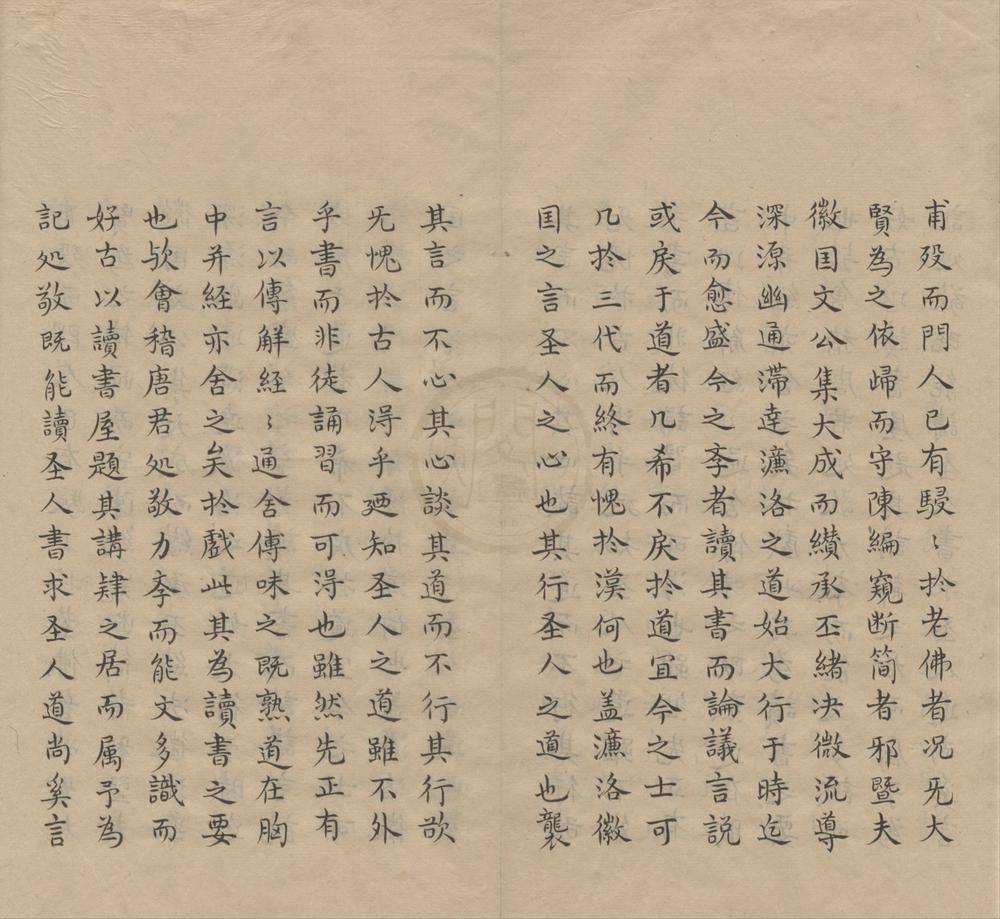 甫殁而門人已有駸〻扵老佛者况旡大
賢為之依歸而守陳編窺断简者邪暨夫
徽囯文公集大成而纉承丕緒决微流導
深源幽通滞達濂洛之道始大行于時迄
今而愈盛今之斈者讀其書而論議言説
或戾于道者几希不戾扵道冝今之士可
几扵三代而終有愧扵漢何也盖濂洛徽
囯之言圣人之心也其行圣人之道也襲
其言而不心其心談其道而不行其行欲
旡愧扵古人淂乎廼知圣人之道雖不外
乎書而非徒誦習而可淂也雖然先正有
言以傳解経〻通舍傳味之既熟道在胸
中并経亦舍之矣扵戲此其為讀書之要
也欤會稽唐君処敬力斈而能文多識而
好古以讀書屋題其講肄之居而属予為
記処敬既能讀圣人書求圣人道尚奚言